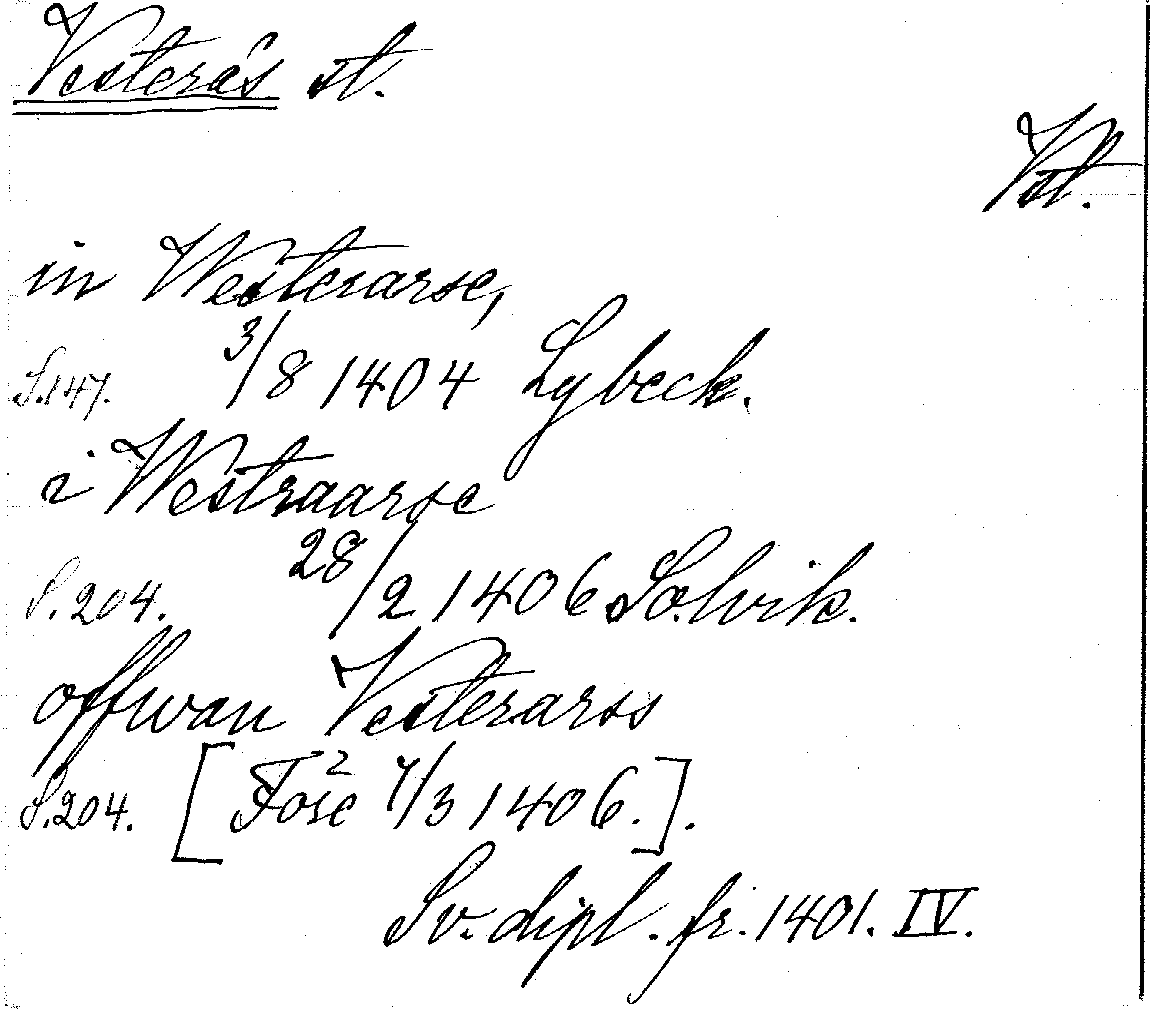 Vesterås st.
Vst.
in Westerarse,
S.147. 3/8 1404 Lybeck.
i Westraarse
S.204. 28/2 1406 Solvik.
offwan Vesterarss
S.204. [ 1406.].
Sv. dipl. fr. 1401. IV.